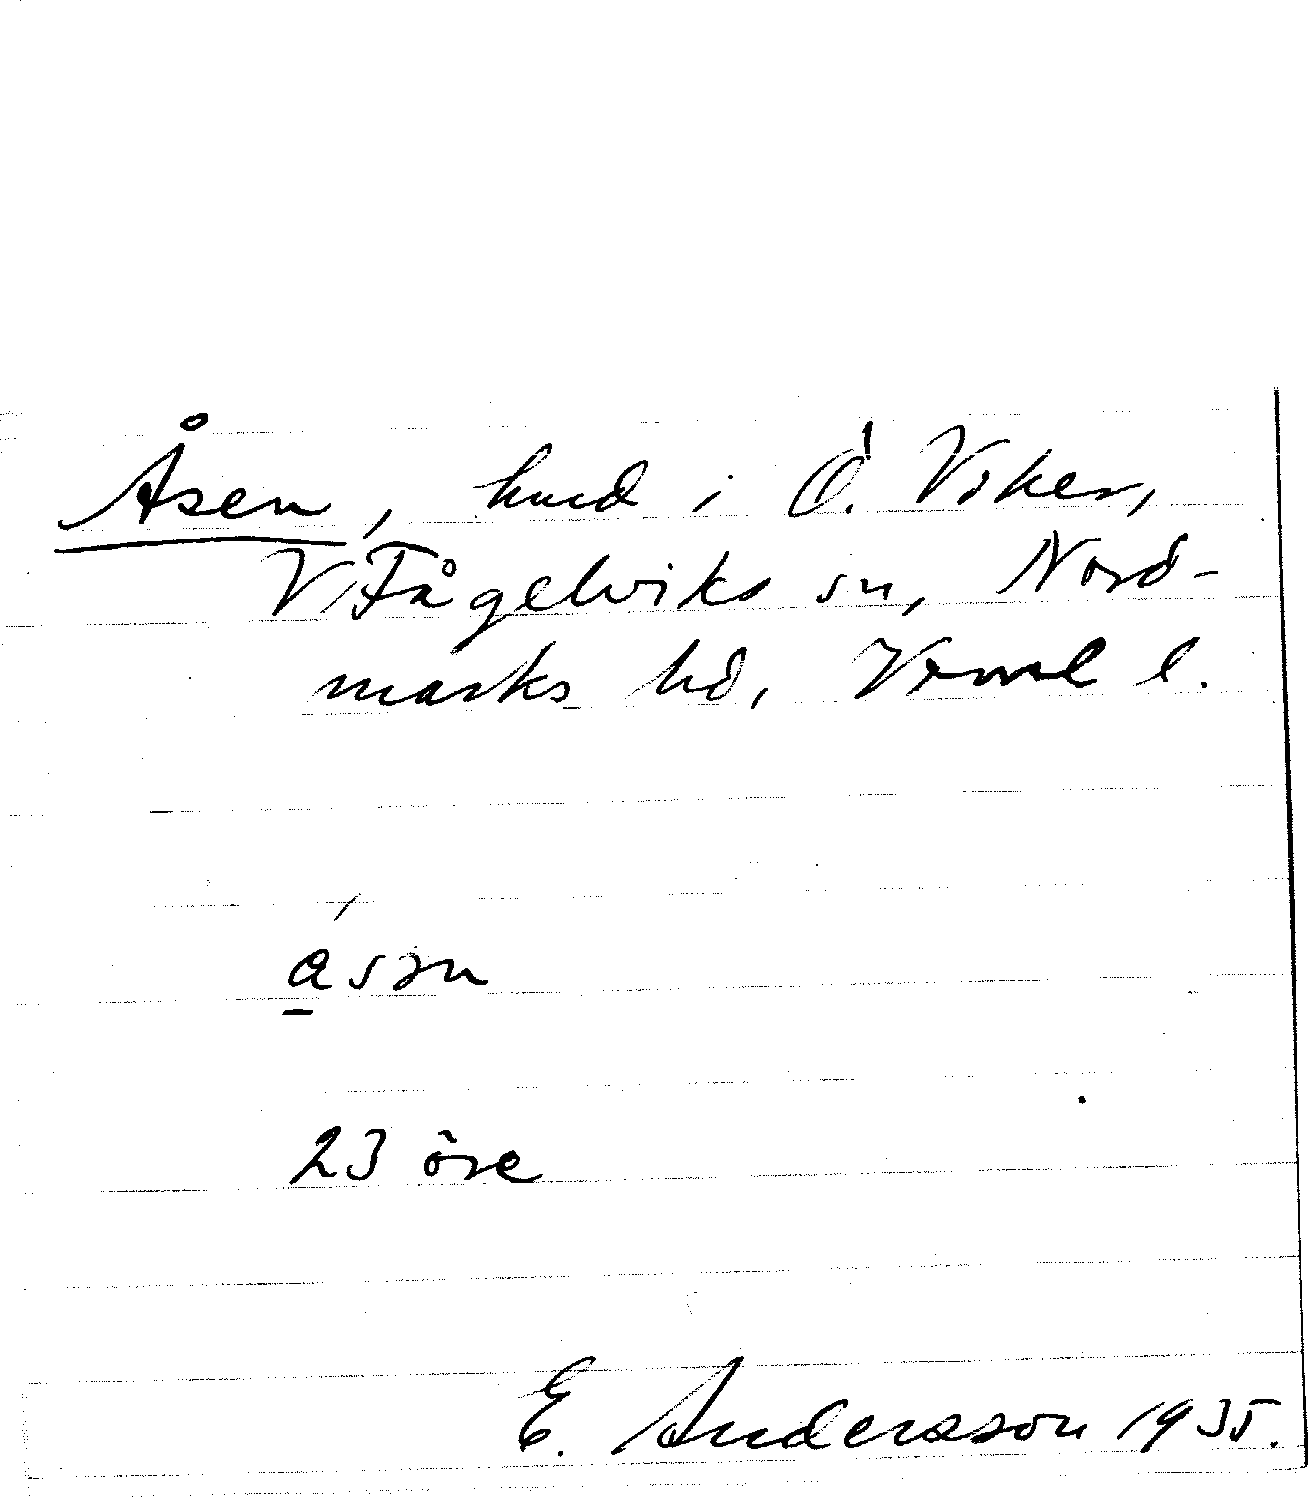 Åsen, hmd i Ö. Viker,
V. Fågelviks sn, Nord-
marks hd, Verml l.
åsən
23 öre
E. Andersson 1935.